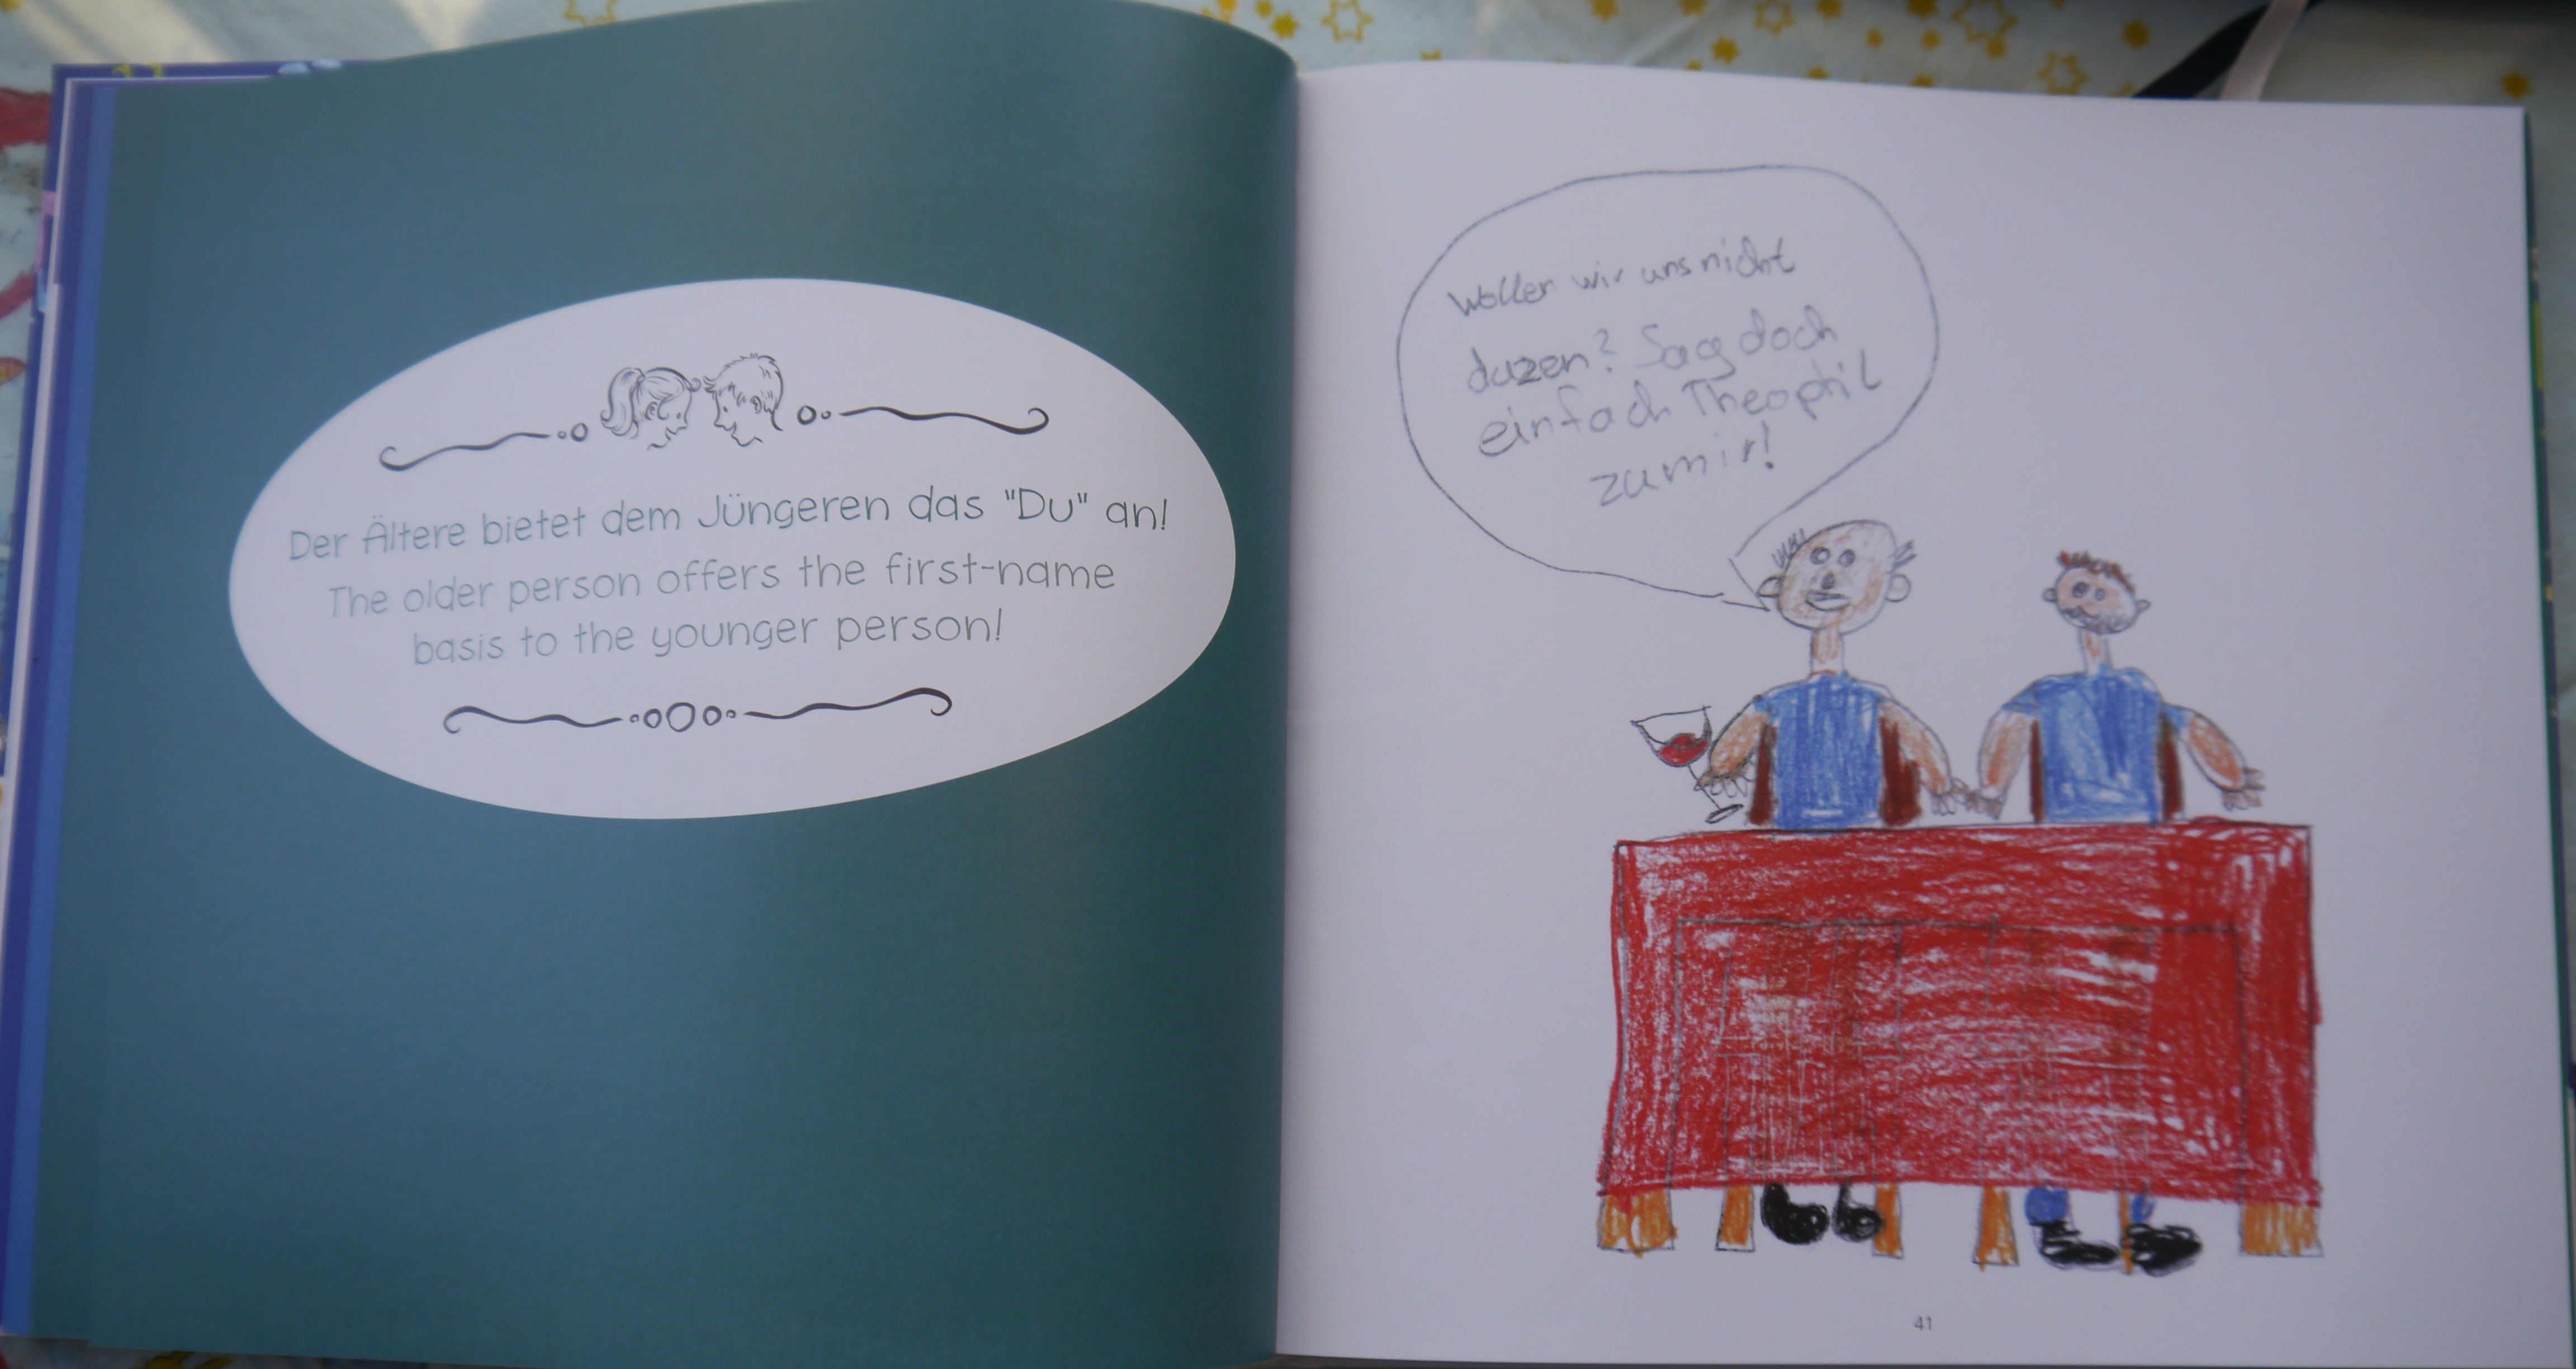 Der Ältere bietet dem Jüngeren das "Du" an!
The older person offers the first-name
basis to the younger person!
Wollen wir uns nicht
duzen? Sag doch
einfach Theophil
zu mir!
41